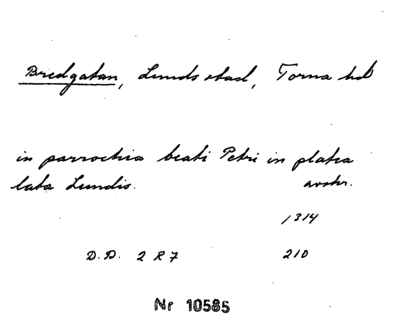 Bredgatan, Lunds stad, Torna hd
in parrochia beati Petri in platea
lata Lundis. avskr.
1314
D.D. 2 R 7 210
Nr 10585